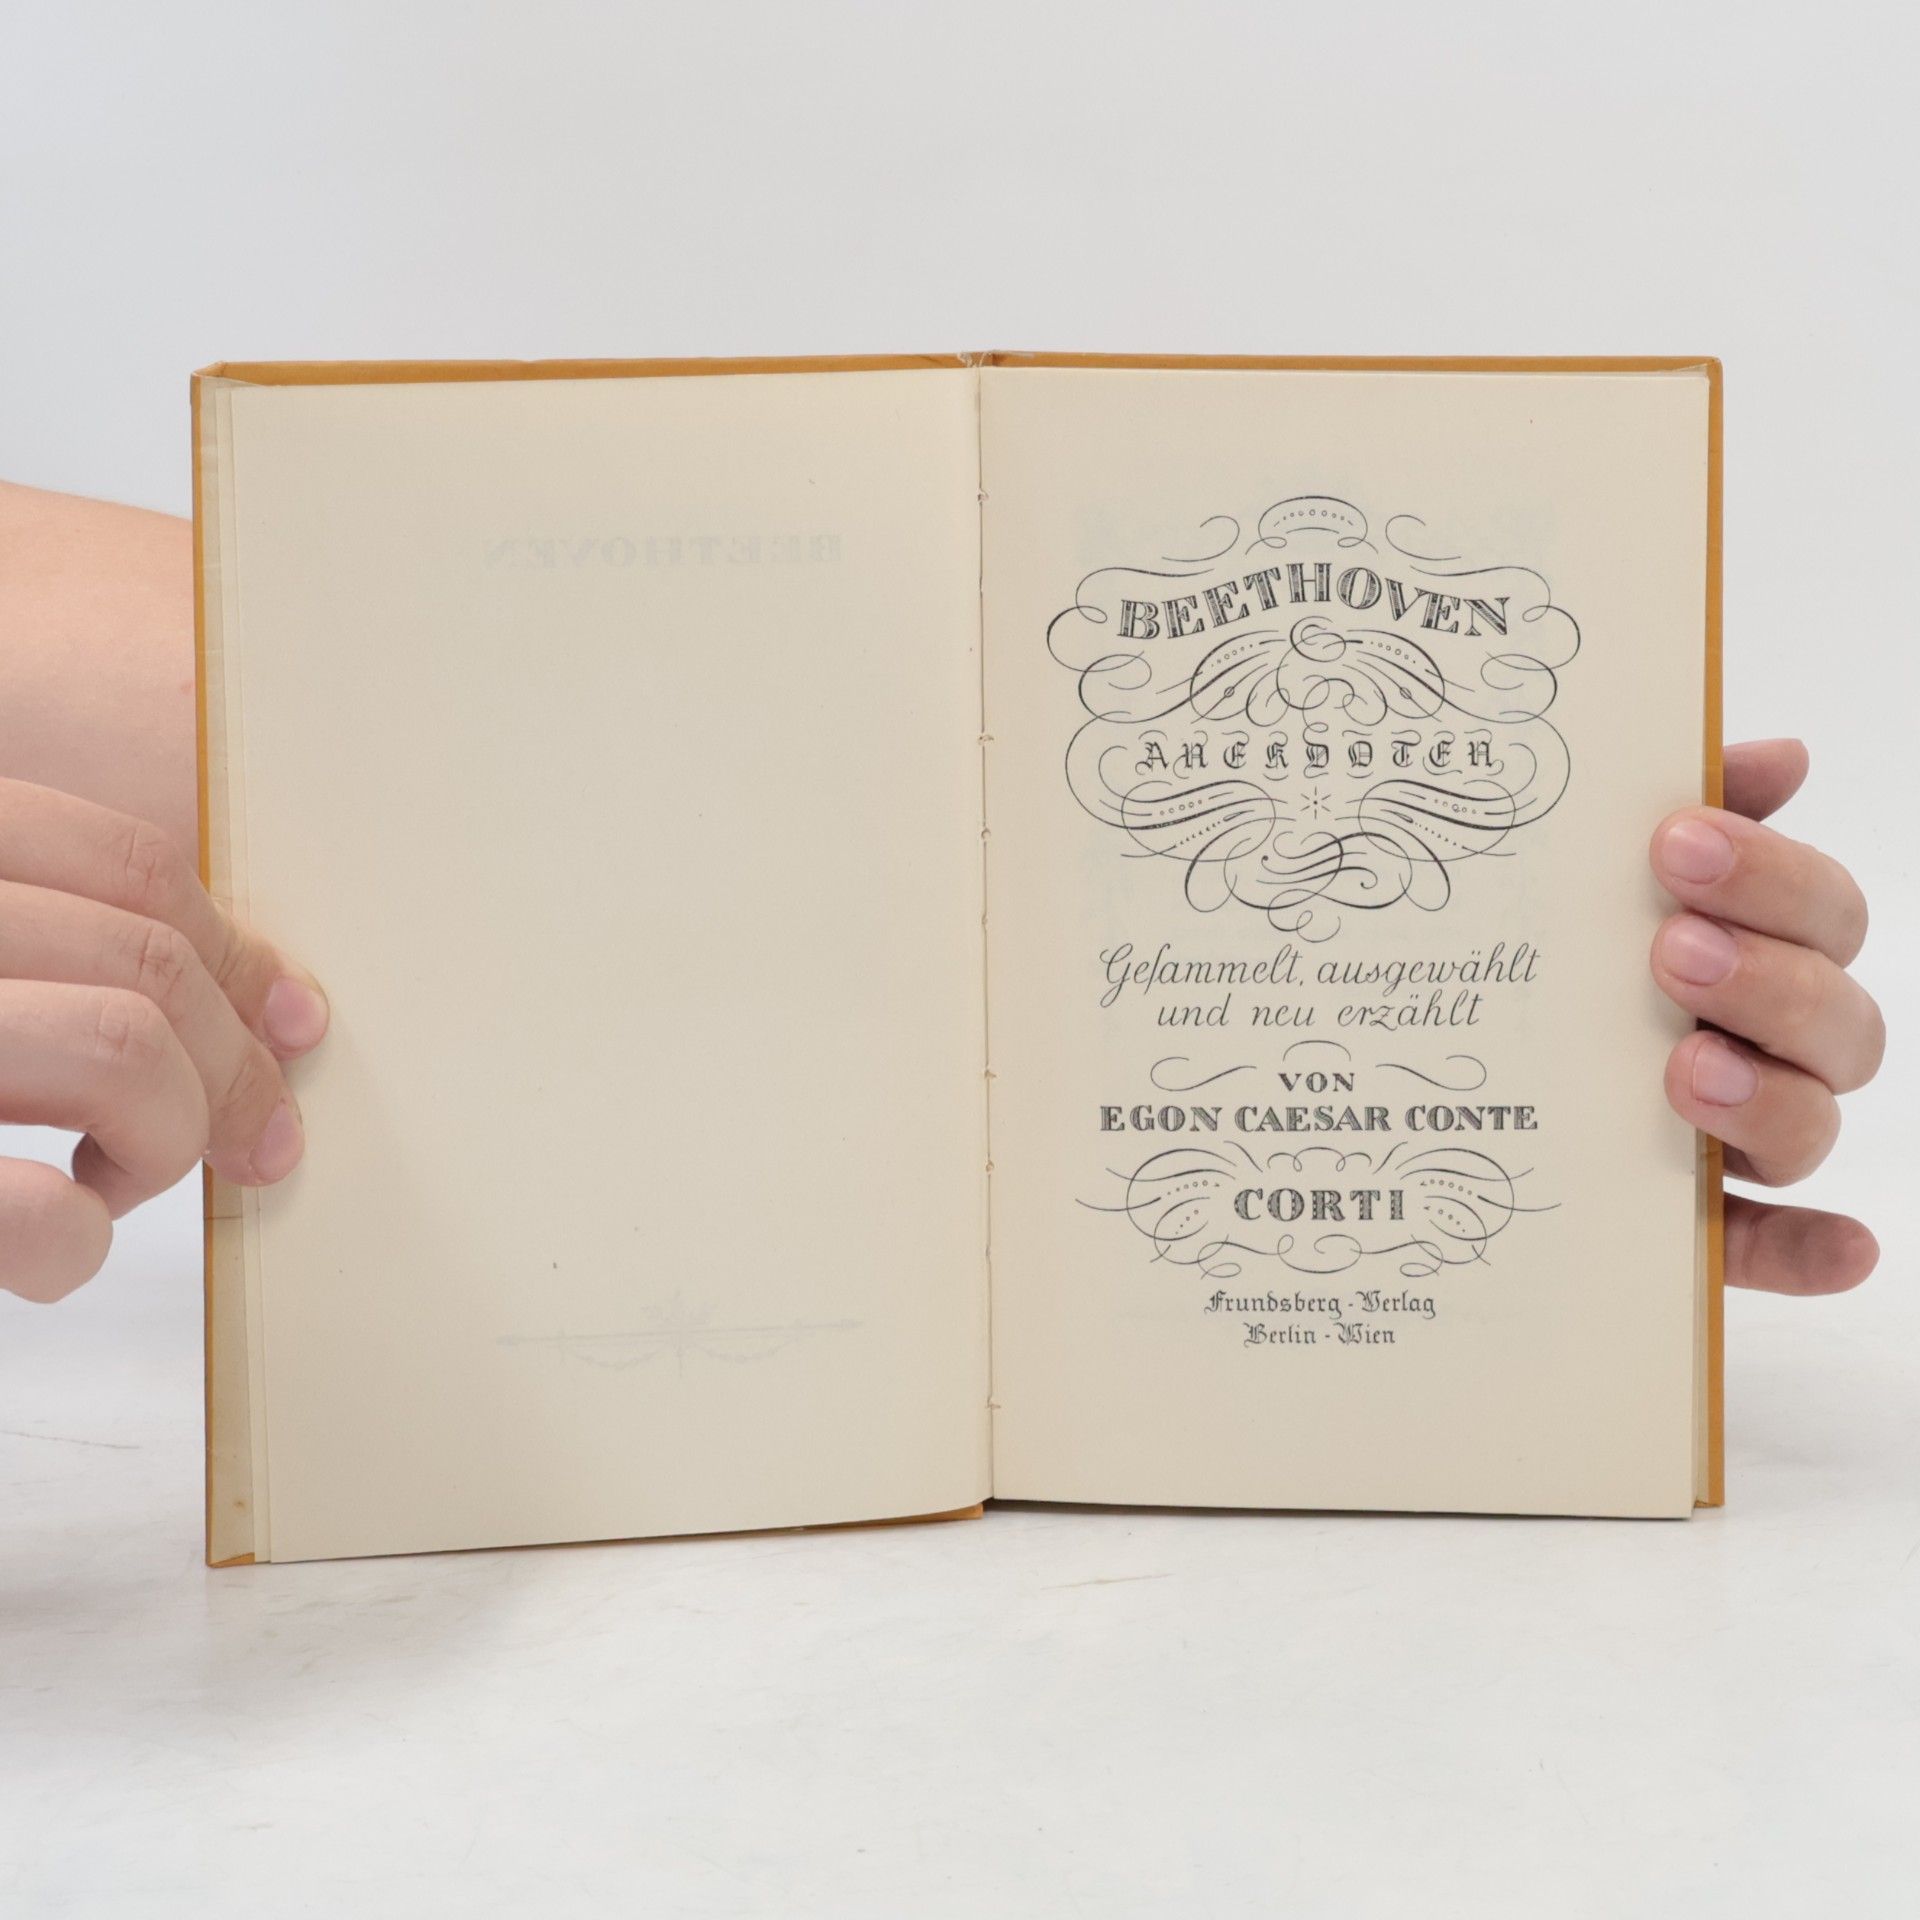 BEETHOVEN
BEETHOVEN
ANEKDOTEN
Geſammelt, ausgewählt
und neu erzählt
VON
EGON CAESAR CONTE
CORTI
Frundsberg - Verlag
Berlin - Wien